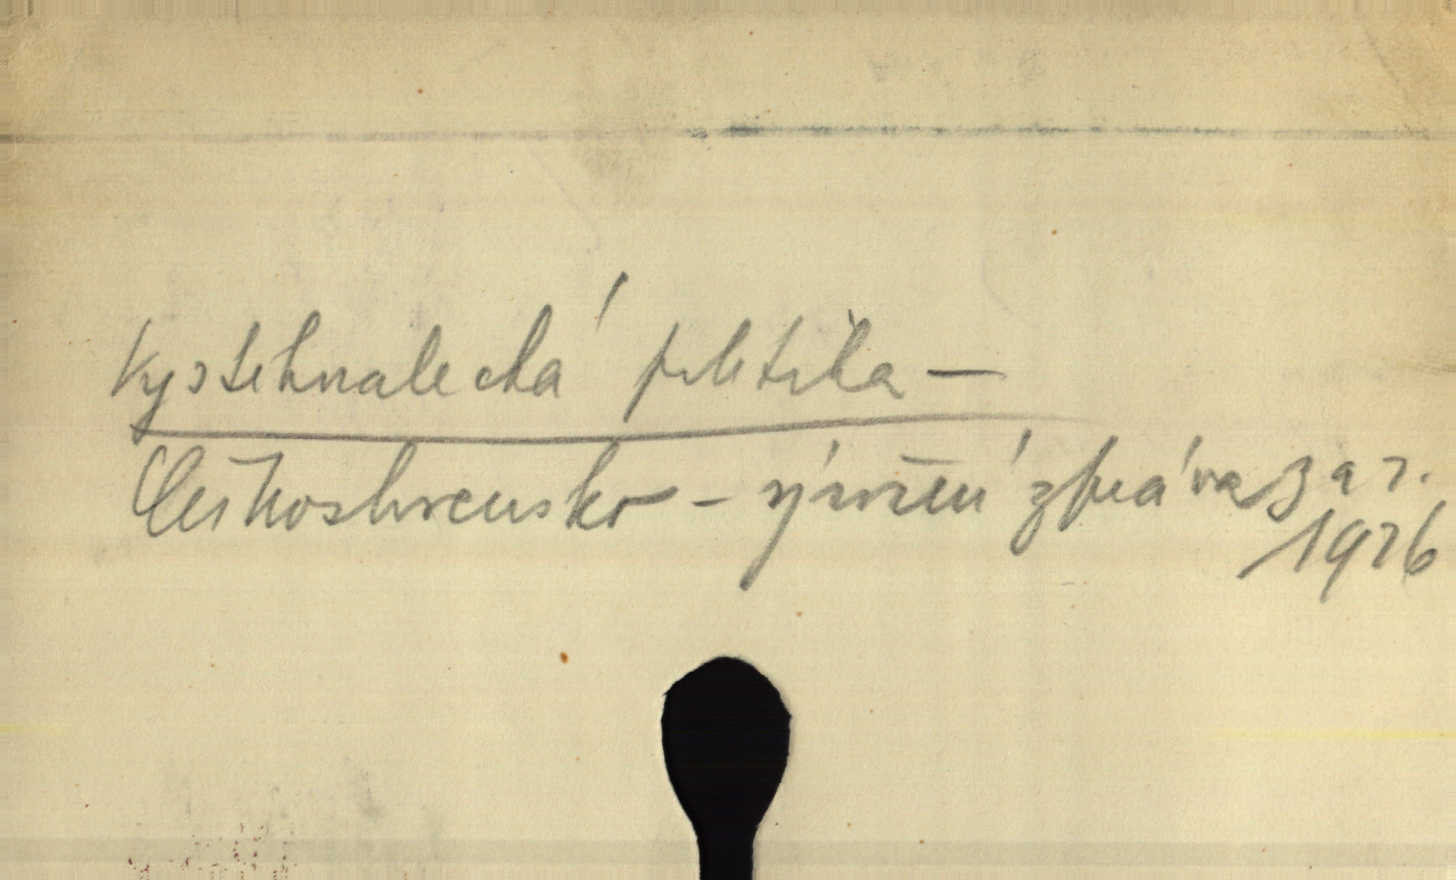 Vystěhnalecká politika —
Československo – výroční zpráva za r.
1926